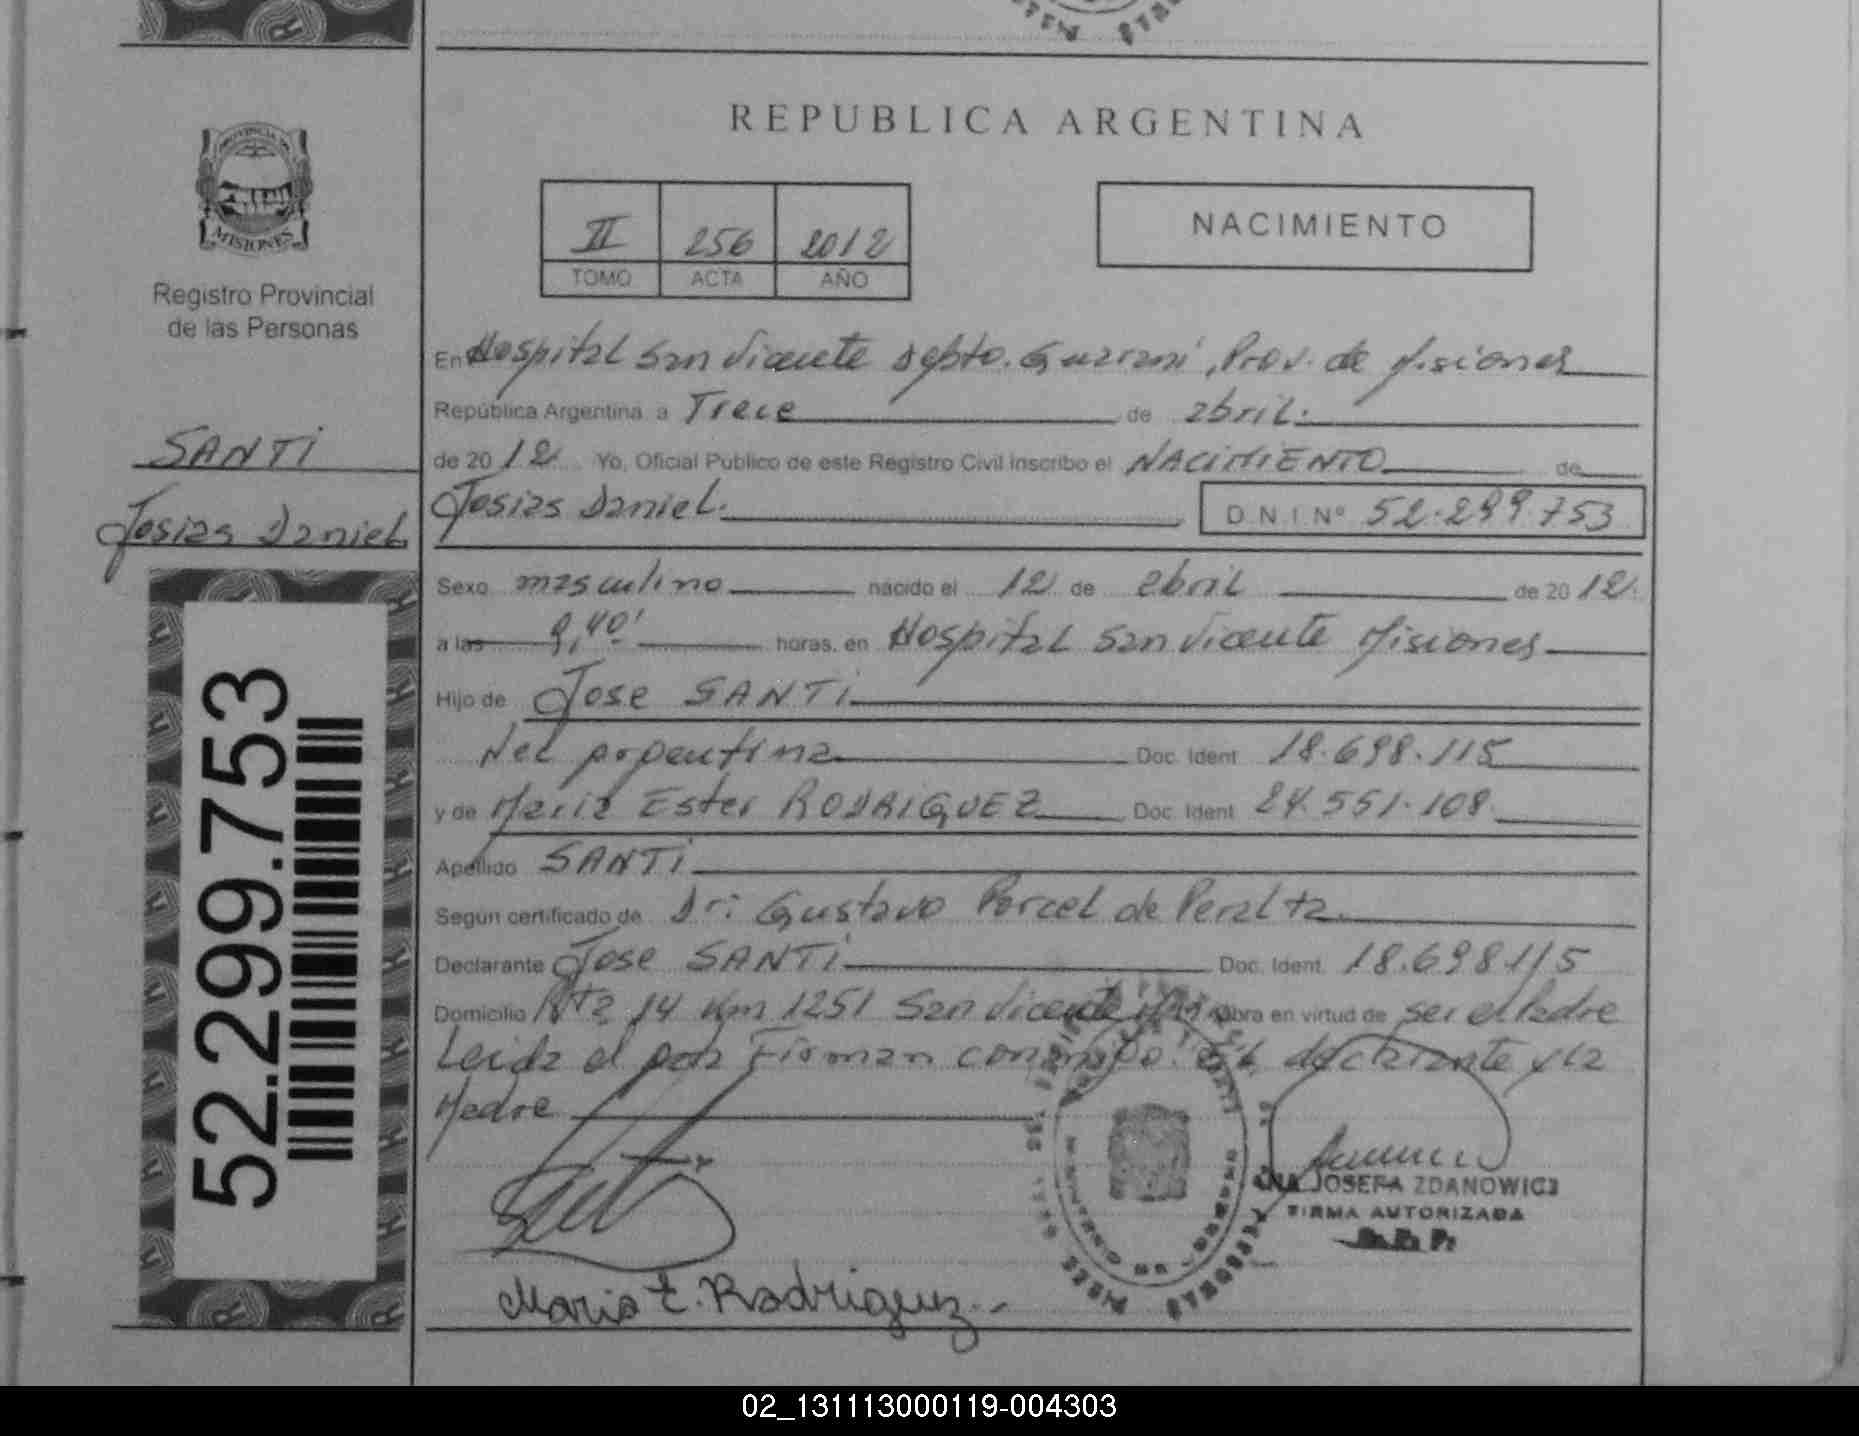 REPUBLICA ARGENTINA
PROVINCIA DE
MISIONES
Registro Provincial
de las Personas
II 256 2012
TOMO ACTA AÑO
NACIMIENTO
SANTI
Josias Daniel
52.299.753
En Hospital San Vicente Depto. Guarani, Prov. de Misiones
República Argentina a Trece de abril.
de 2012 Yo, Oficial Publico de este Registro Civil inscribo el NACIMIENTO de
Josias Daniel.
D.N.I. Nº 52.299.753
Sexo masculino nacido el 12 de abril de 2012.
a las 9,40' horas, en Hospital San Vicente Misiones
Hijo de Jose SANTI
Nac argentina Doc. Ident. 18.698.115
y de Maria Ester RODRIGUEZ Doc. Ident. 24.551.108.
Apellido SANTI
Según certificado de Dr: Gustavo Porcel de Peralta.
Declarante Jose SANTI Doc. Ident. 18.698115
Domicilio Rta 14 Km 1251 San Vicente Obra en virtud de ser el Padre
Leida el Firman el declarante y la
Madre
Maria E. Rodriguez.-
JOSEFA ZDANOWICZ
FIRMA AUTORIZADA
R. P. P.
02_131113000119-004303